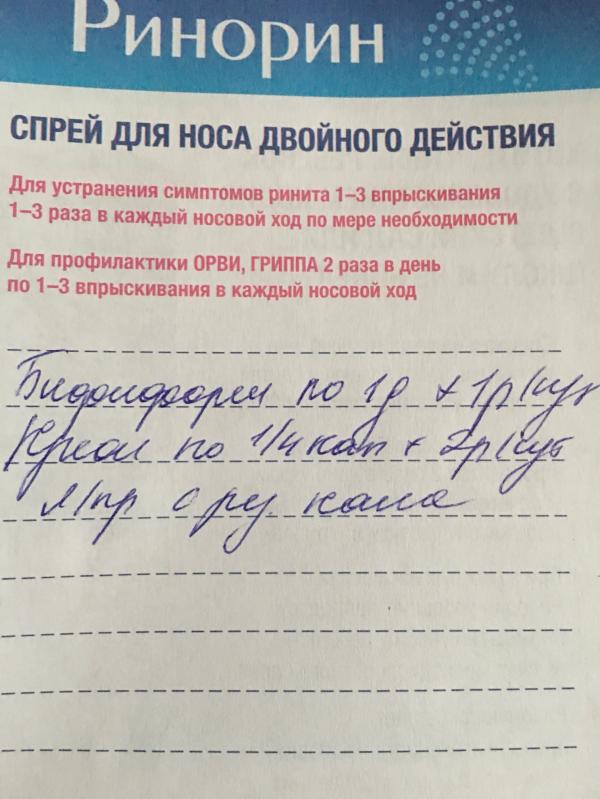 Ринорин
СПРЕЙ ДЛЯ НОСА ДВОЙНОГО ДЕЙСТВИЯ
Для устранения симптомов ринита 1–3 впрыскивания
1–3 раза в каждый носовой ход по мере необходимости
Для профилактики ОРВИ, ГРИППА 2 раза в день
по 1–3 впрыскивания в каждый носовой ход
Бифиформ по 1д х 1р/сут
по 1/4 кап х 2р/сут
кала